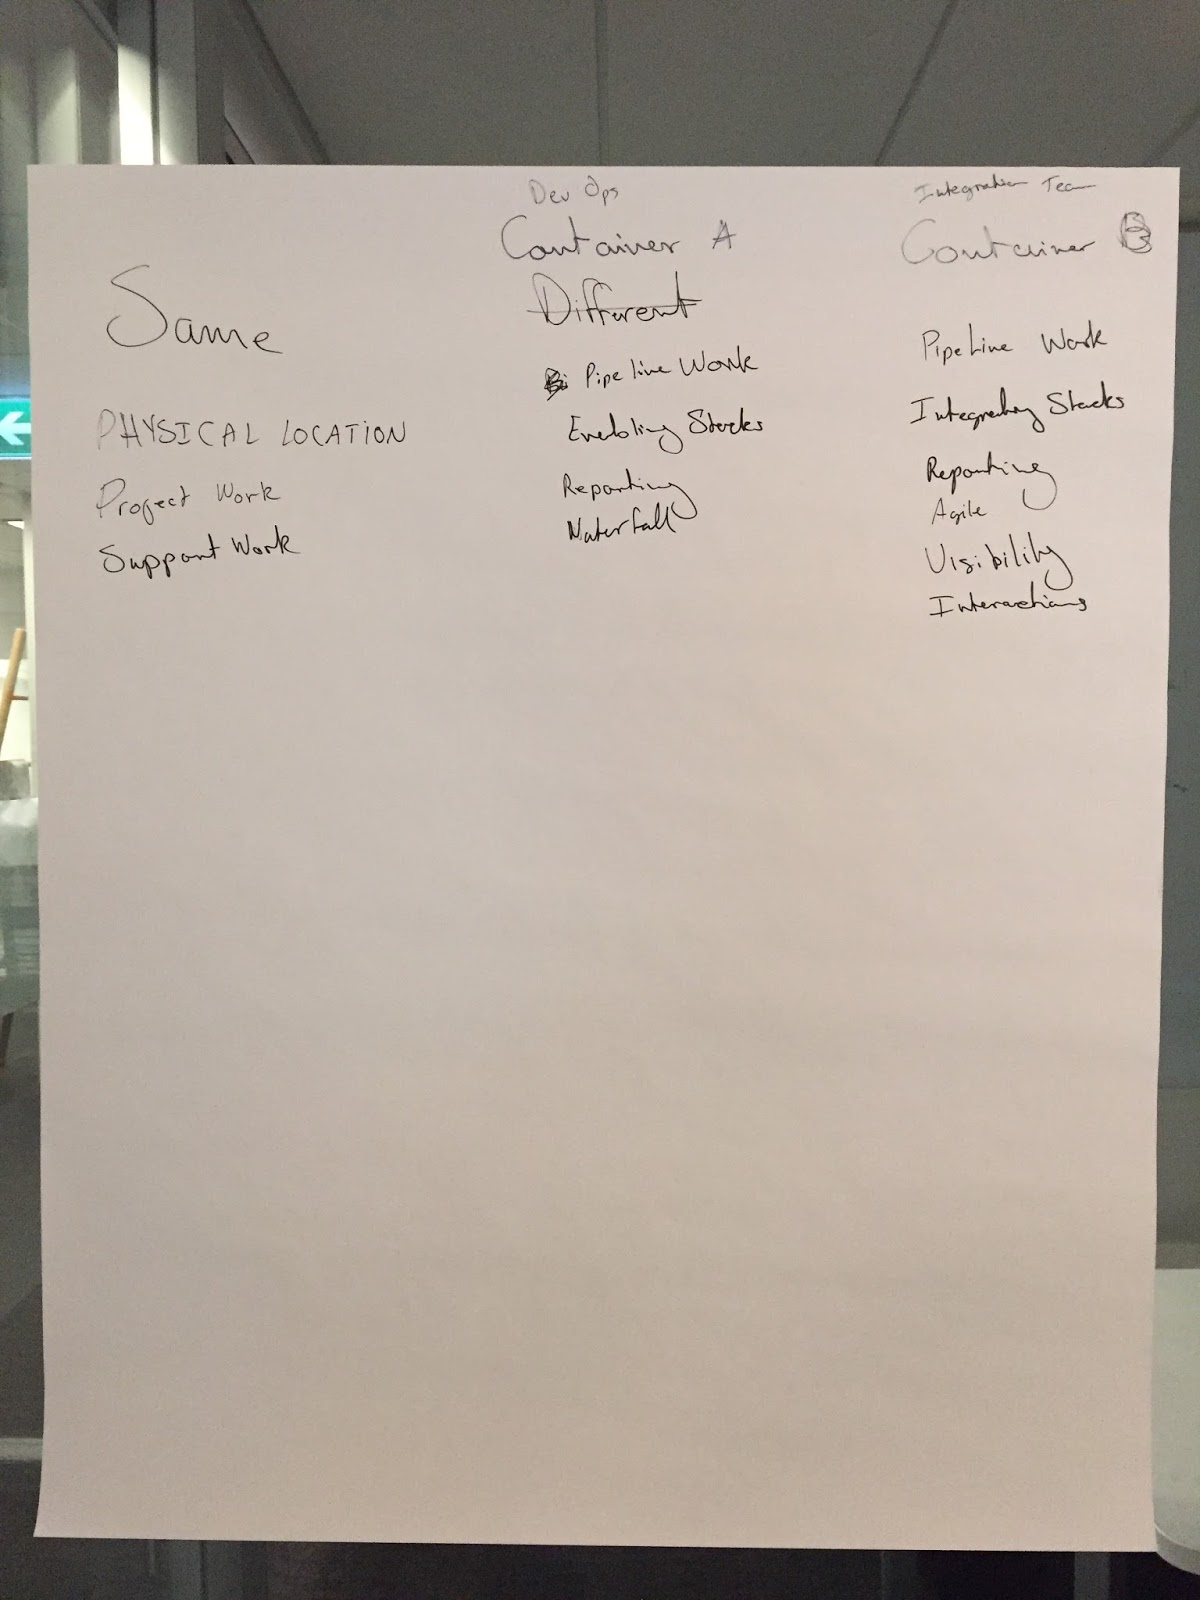 Same
PHYSICAL LOCATION
Project Work
Support Work
Dev Ops
Container A
Different
Pipeline Work
Enabling Stacks
Reporting
Waterfall
Integration Team
Container B
Pipeline Work
Integrating Stacks
Reporting
Agile
Visibility
Interactions